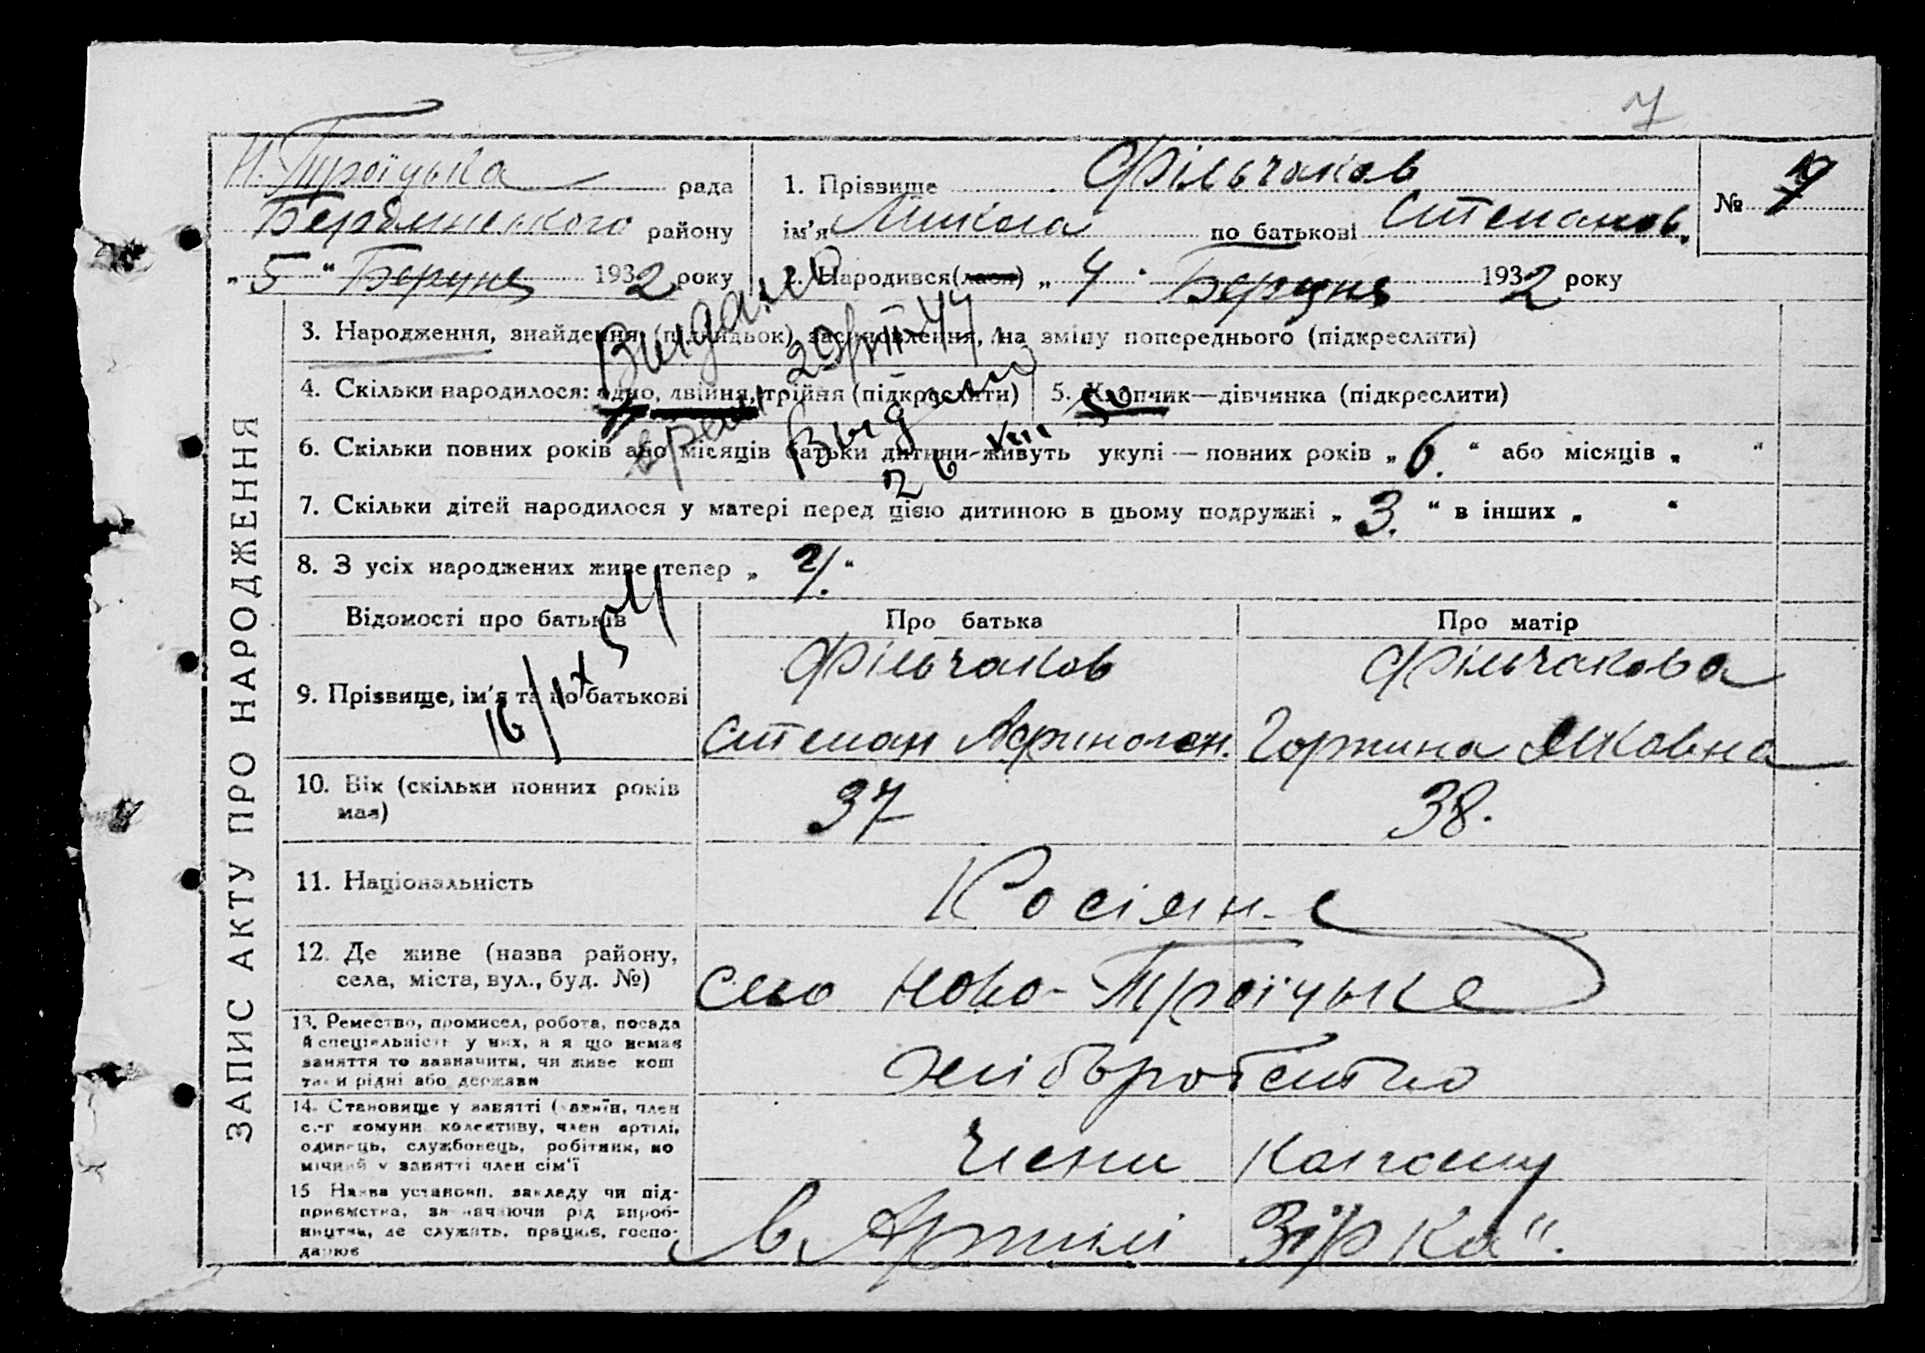 7
Н. Троїцька рада
Бердянського району
„ 5 “ Беруня 1932 року
1. Прізвище Фільчаков
ім'я Микола по батькові Степанов.
№ 7
2. Народився(лася) „ 4 “ Беруня 1932 року
3. Народження, знайдення (підкидьок), засновлення, на зміну попереднього (підкреслити)
4. Скільки народилося: одно, двійня, трійня (підкреслити)
5. Хлопчик—дівчинка (підкреслити)
6. Скільки повних років або місяців батьки дитини живуть укупі — повних років „ 6. “ або місяців „ “
7. Скільки дітей народилося у матері перед цією дитиною в цьому подружжі „ 3. “ в інших „ “
8. З усіх народжених живе тепер „ “
Видано
29/VIII-44
Выдано
26 VIII 50
16/IX 54
Відомості про батьків
Про батька
Про матір
9. Прізвище, ім'я та по батькові
Фільчаков
Степан Афиноген.
Фільчакова
Горпина Яковна
10. Вік (скільки повних років має)
37
38.
11. Національність
Росіяне
12. Де живе (назва району,
села, міста, вул., буд. №)
село Ново-Троїцьке
13. Ремество, промисел, робота, посада
й спеціяльність у них, а я що немає
заняття то зазначити, чи живе кош
тами рідні або держави
хліборобство
14. Становище у занятті (хазяїн, член
с.-г комуни колективу, член артілі,
одинець, службовець, робітник, по
мічний у занятті член сім'ї
Члени колгоспу
15 Назва установи, закладу чи під-
приємства, зазначаючи рід вироб-
ництва, де служить, працює, госпо-
дарює
в Артілі Зірка“.
ЗАПИС АКТУ ПРО НАРОДЖЕННЯ